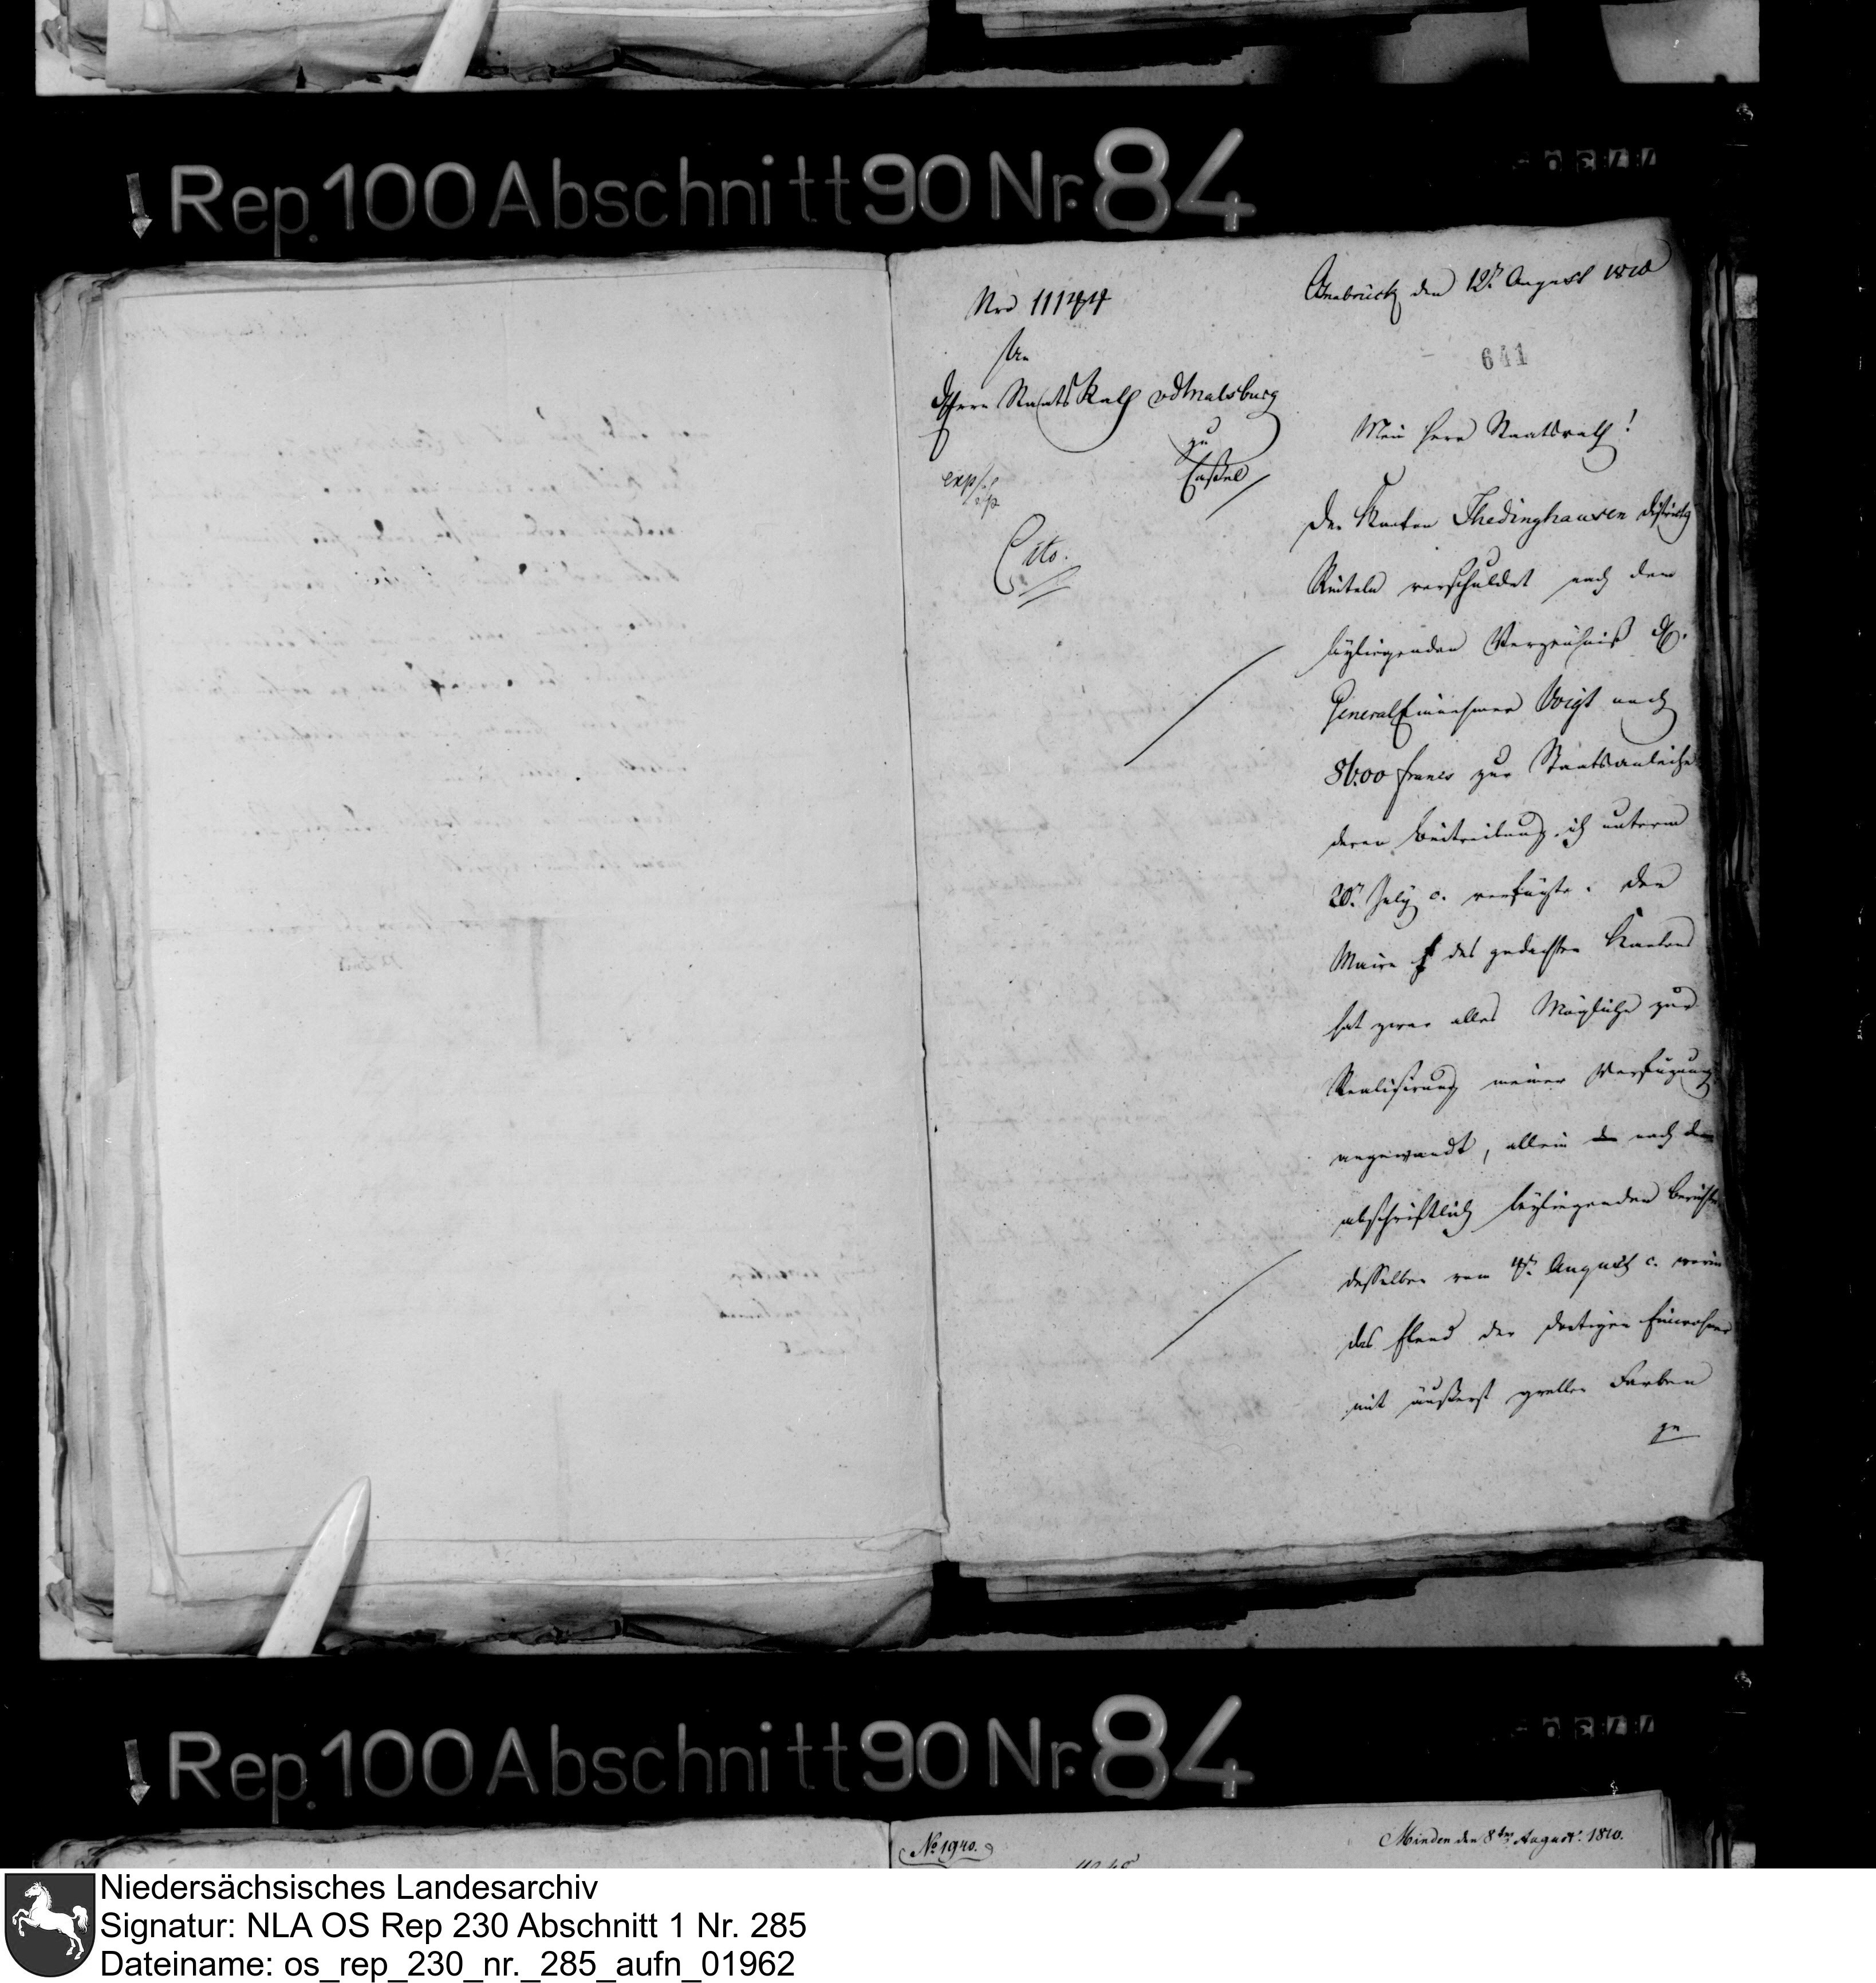 Rep. 100 Abschnitt 90 Nr. 84
Nro 11144
Osnabrück den 12t. August 1810
641
An
Herrn Staats Rath vdMalsburg
zu
Cassel
exp.
Cito.
Mein Herr Staatsrath!
Der Kanton Thedinghausen Districts
Rinteln verschuldet nach dem
beyliegenden Verzeichniß des
General Einnehmer Voigt noch
francs zur Staatsanleihe
deren Beitreibung ich unterm
20t. July c. verfügte. Der
Maire des gedachten Kantons
hat zwar alles Mögliche zur
Realisirung meiner Verfügung
angewandt, allein nach dem
abschriftlich beyliegenden Bericht
desselben vom August c. worin
das Elend der dortigen Einwohner
mit äußerst grellen Farben
ge
Rep. 100 Abschnitt 90 Nr. 84
No 1940.
Minden den 8ten August. 1810.
Niedersächsisches Landesarchiv
Signatur: NLA OS Rep 230 Abschnitt 1 Nr. 285
Dateiname: os_rep_230_nr._285_aufn_01962